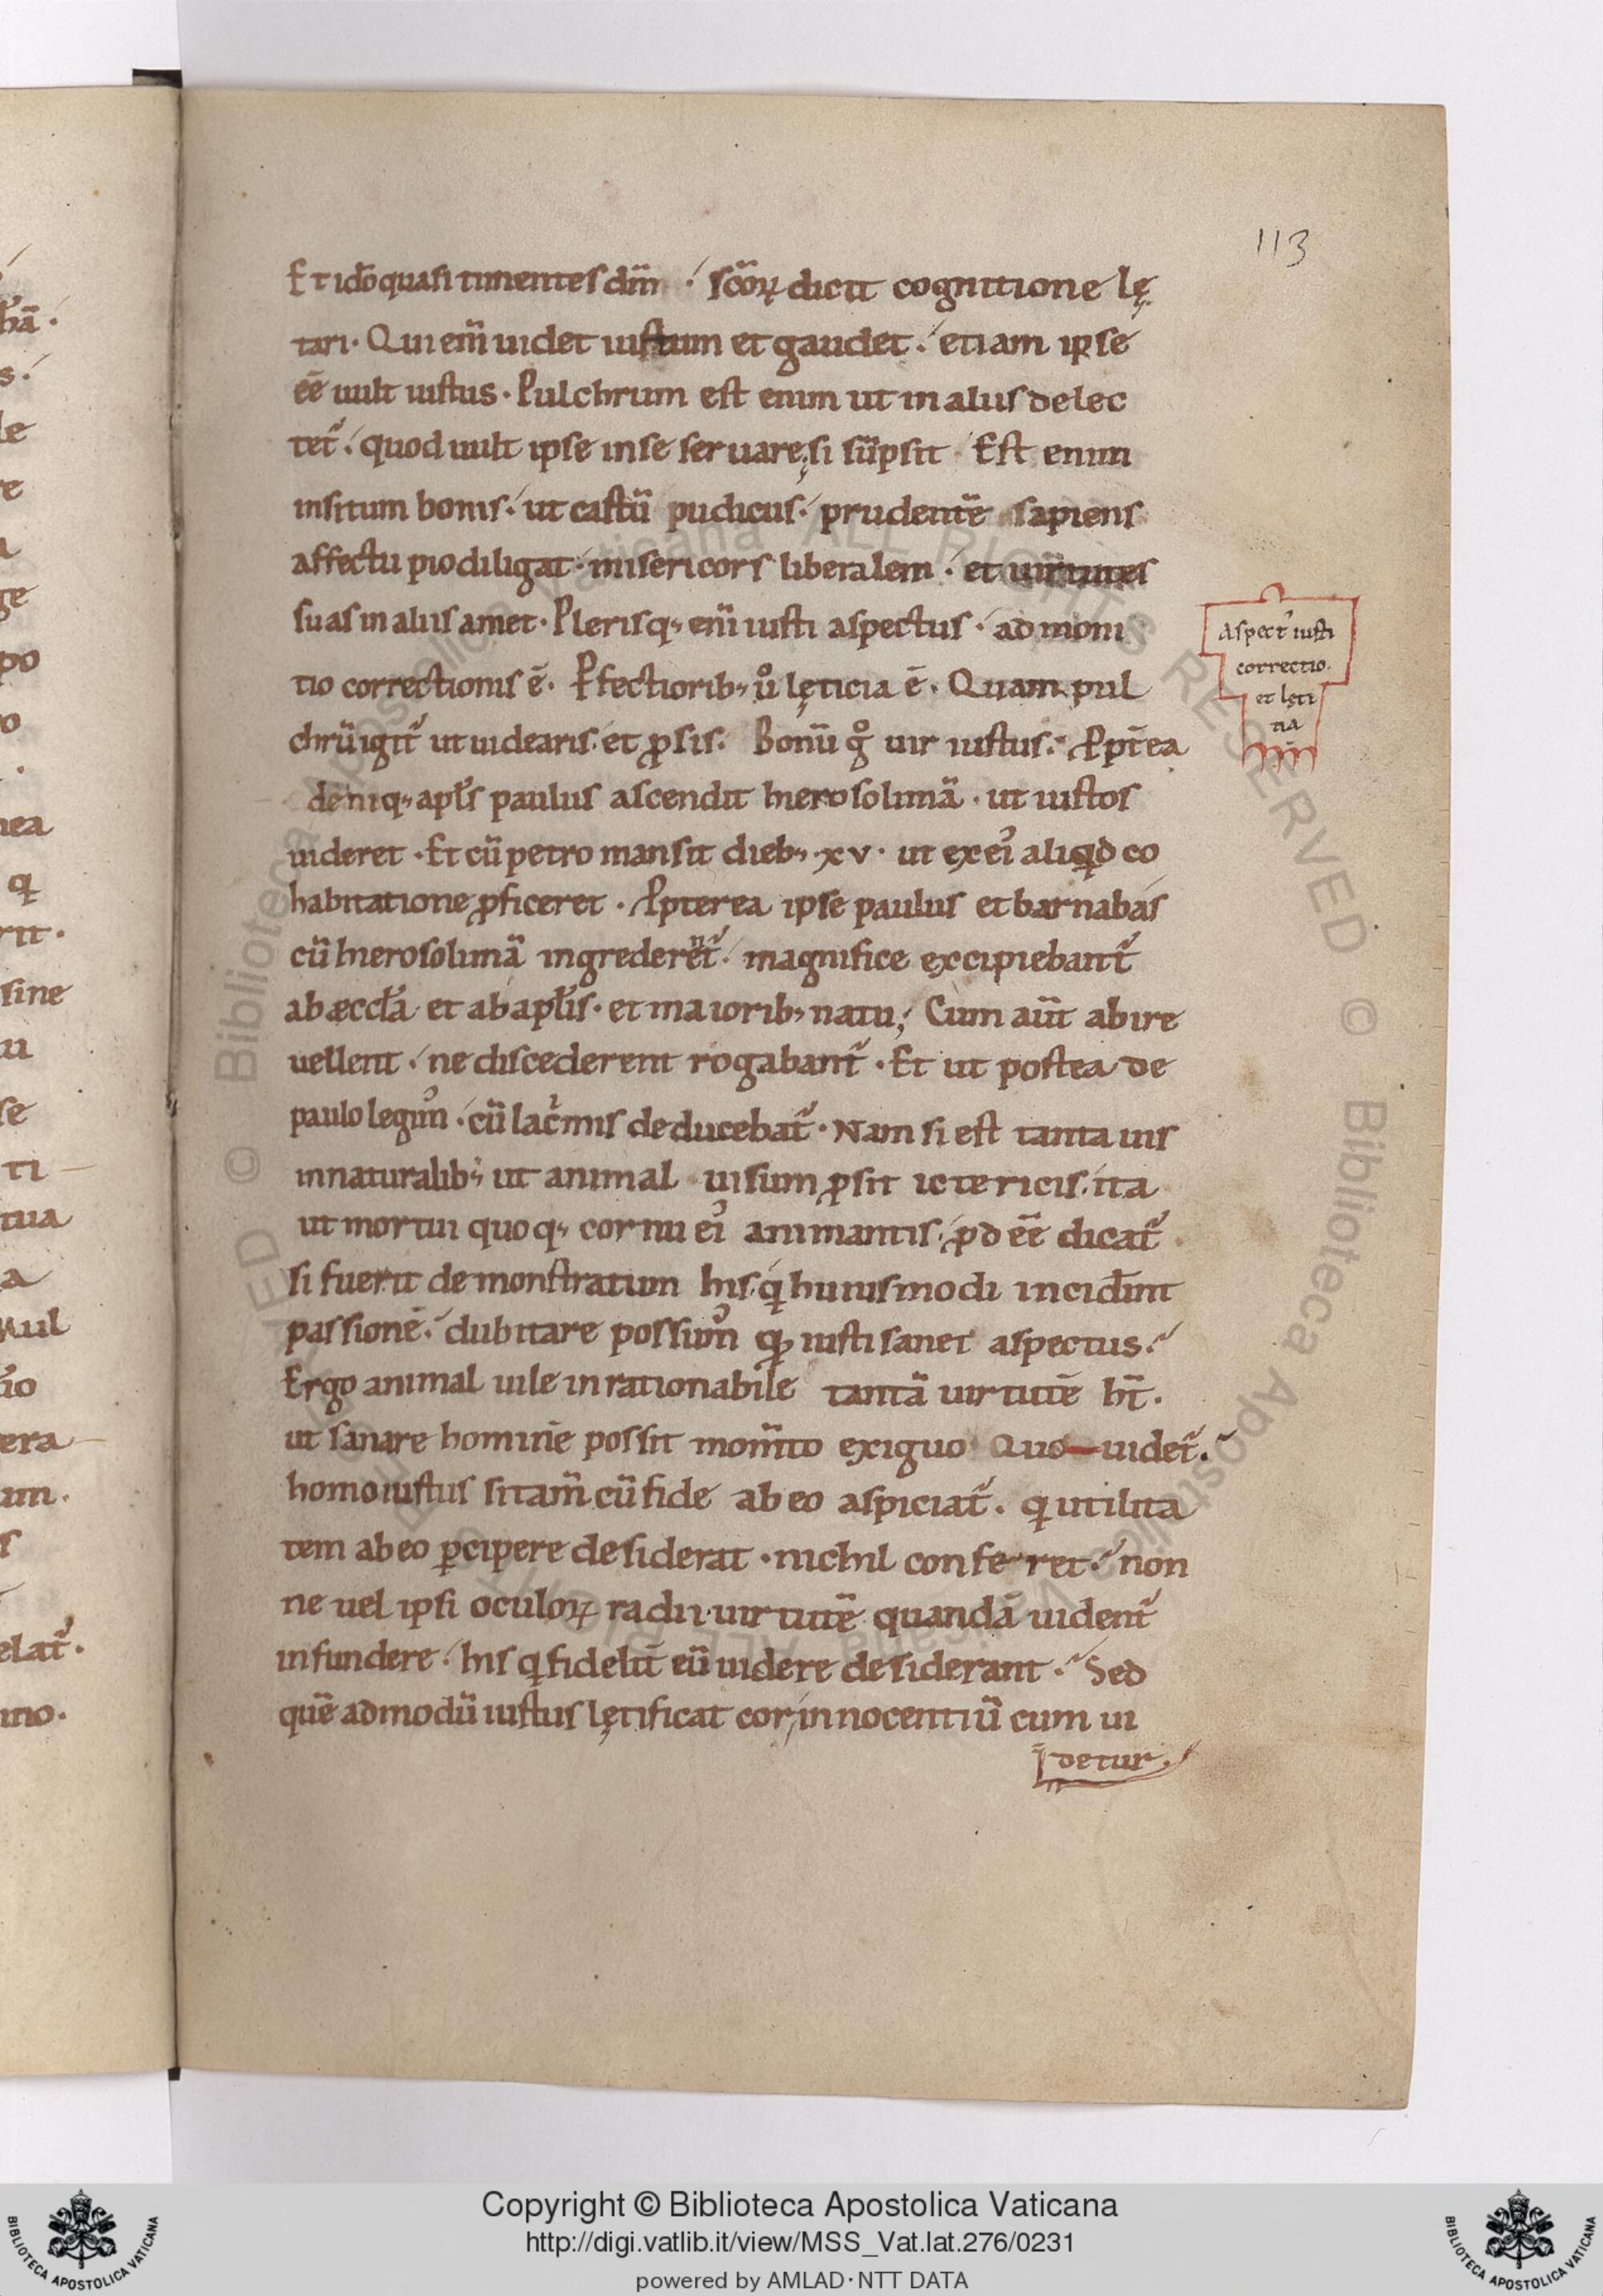 113
Et idõ quasi timentes dm̃ ·́ sc̃oꝝ dicit cognitione lę
tari · Qui em̃ uidet iustum et gaudet ·́ etiam ipse
eẽ uult iustus · Pulchrum est enim ut in aliis delec
tet᷑ ·́ quod uult ipse in se seruare, si sũpsit · Est enim
insitum bonis ·́ ut castũ pudicus ·́ prudentẽ sapiens
affectu pio diligat ·́ misericors liberalem · et uirtutes
suas in aliis amet · Plerisq; em̃ iusti aspectus ·́ admoni
tio correctionis ẽ · Pfectiorib; ů lęticia ẽ · Quam pul
chrũ igit᷑ ut uidearis · et ꝓsis · Bonũ g̊ uir iustus ·́ Ppt̃ea
deniq; apl̃s paulus ascendit hierosolimã · ut iustos
uideret · Et cũ petro mansit dieb; · xv · ut ex ei᷒ aliqd co
habitatione ꝓficeret · Ppterea ipse paulus et barnabas
cũ hierosolimã ingrederẽt᷑ ·́ magnifice excipiebant᷑
ab æccl̃a et ab apl̃is · et maiorib; natu; Cum aũt abire
uellent ·́ ne discederent rogabant᷑ · Et ut postea de
paulo legim᷒ ·́ cũ lac̃mis deducebat᷑ · Nam si est tanta uis
in naturalib; ut animal uisum ꝓsit ictericis · ita
ut mortui quoq; cornu ei᷒ animantis · ꝓd eẽ dicat᷑
si fuerit demonstratum his · q́ huiusmodi incidint
passionẽ ·́ dubitare possum᷒ qđ iusti sanet aspectus ·́
Ergo animal uile inrationabile tantã uirtutẽ ht̃ ·
ut sanare hominẽ possit mom̃to exiguo Quo uidet᷑ ·́
homo iustus si tam̃ cũ fide ab eo aspiciat᷑ · q utilita
tem ab eo ꝑcipere desiderat · nichil conferret ·́ non
ne uel ipsi oculoꝝ radii uirtutẽ quandã uident᷑
infundere ·́ his q fidelit̃ eũ uidere desiderant ·́ Sed
quẽ admodũ iustus lętificat cor, innocentiũ cum ui
detur ·
Aspect᷒ iusti
correctio ·
et lęti
tia
Copyright © Biblioteca Apostolica Vaticana
http://digi.vatlib.it/view/MSS_Vat.lat.276/0231
powered by AMLAD·NTT DATA
BIBLIOTECA APOSTOLICA VATICANA
BIBLIOTECA APOSTOLICA VATICANA
© Biblioteca Apostolica Vaticana ALL RIGHTS RESERVED © Biblioteca Apostolica Vaticana ALL RIGHTS RESERVED